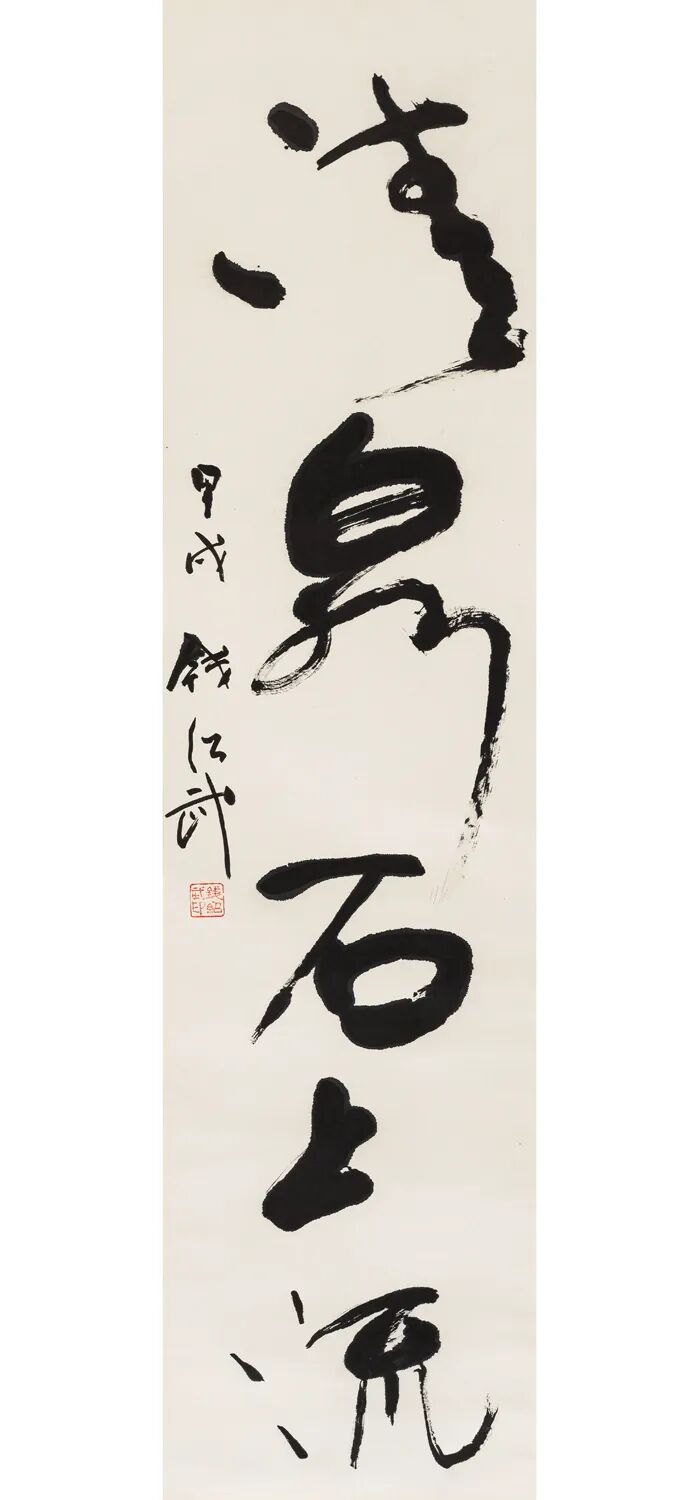 清泉石上流
甲戌 钱绍武
錢紹武印